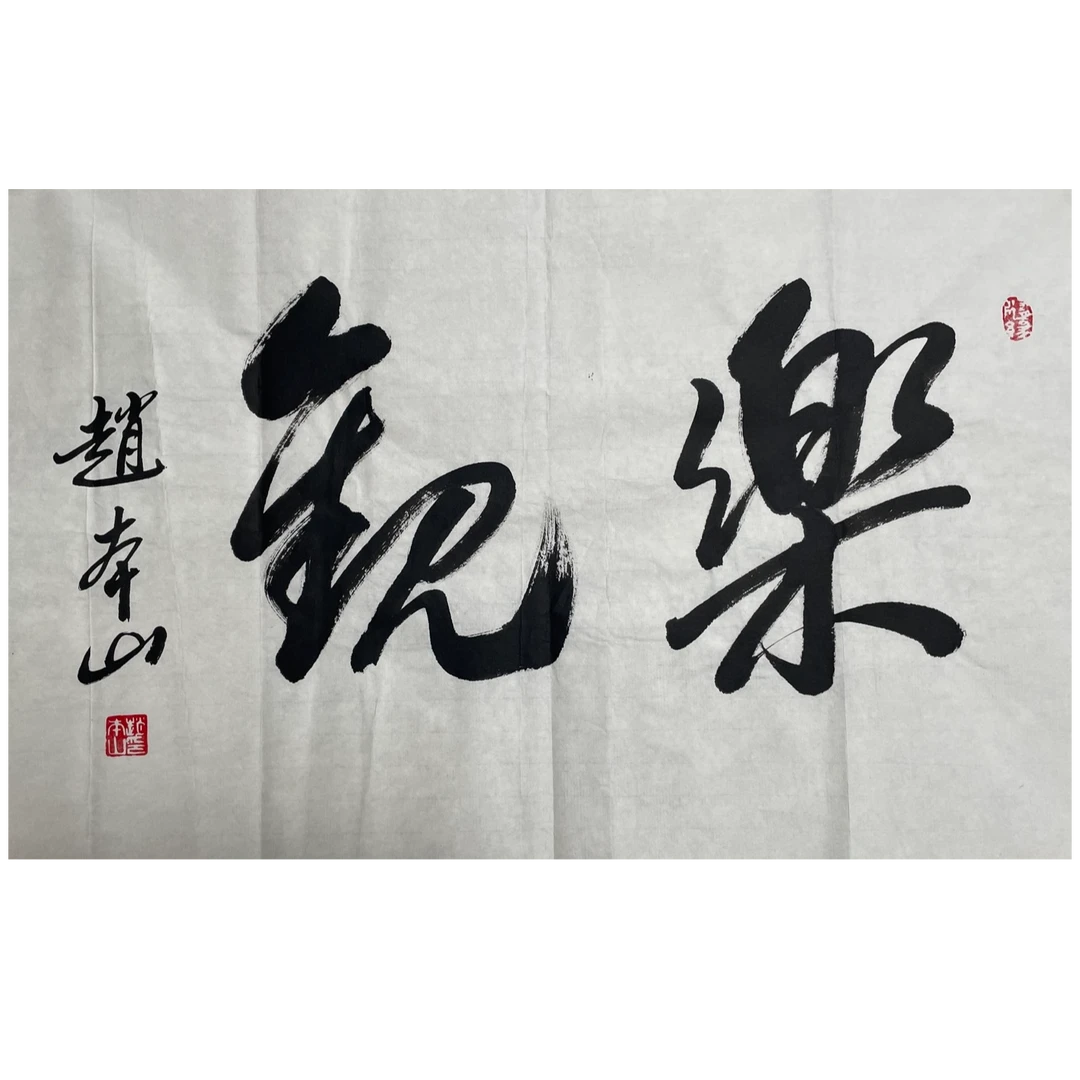 樂觀
趙本山
趙本山印